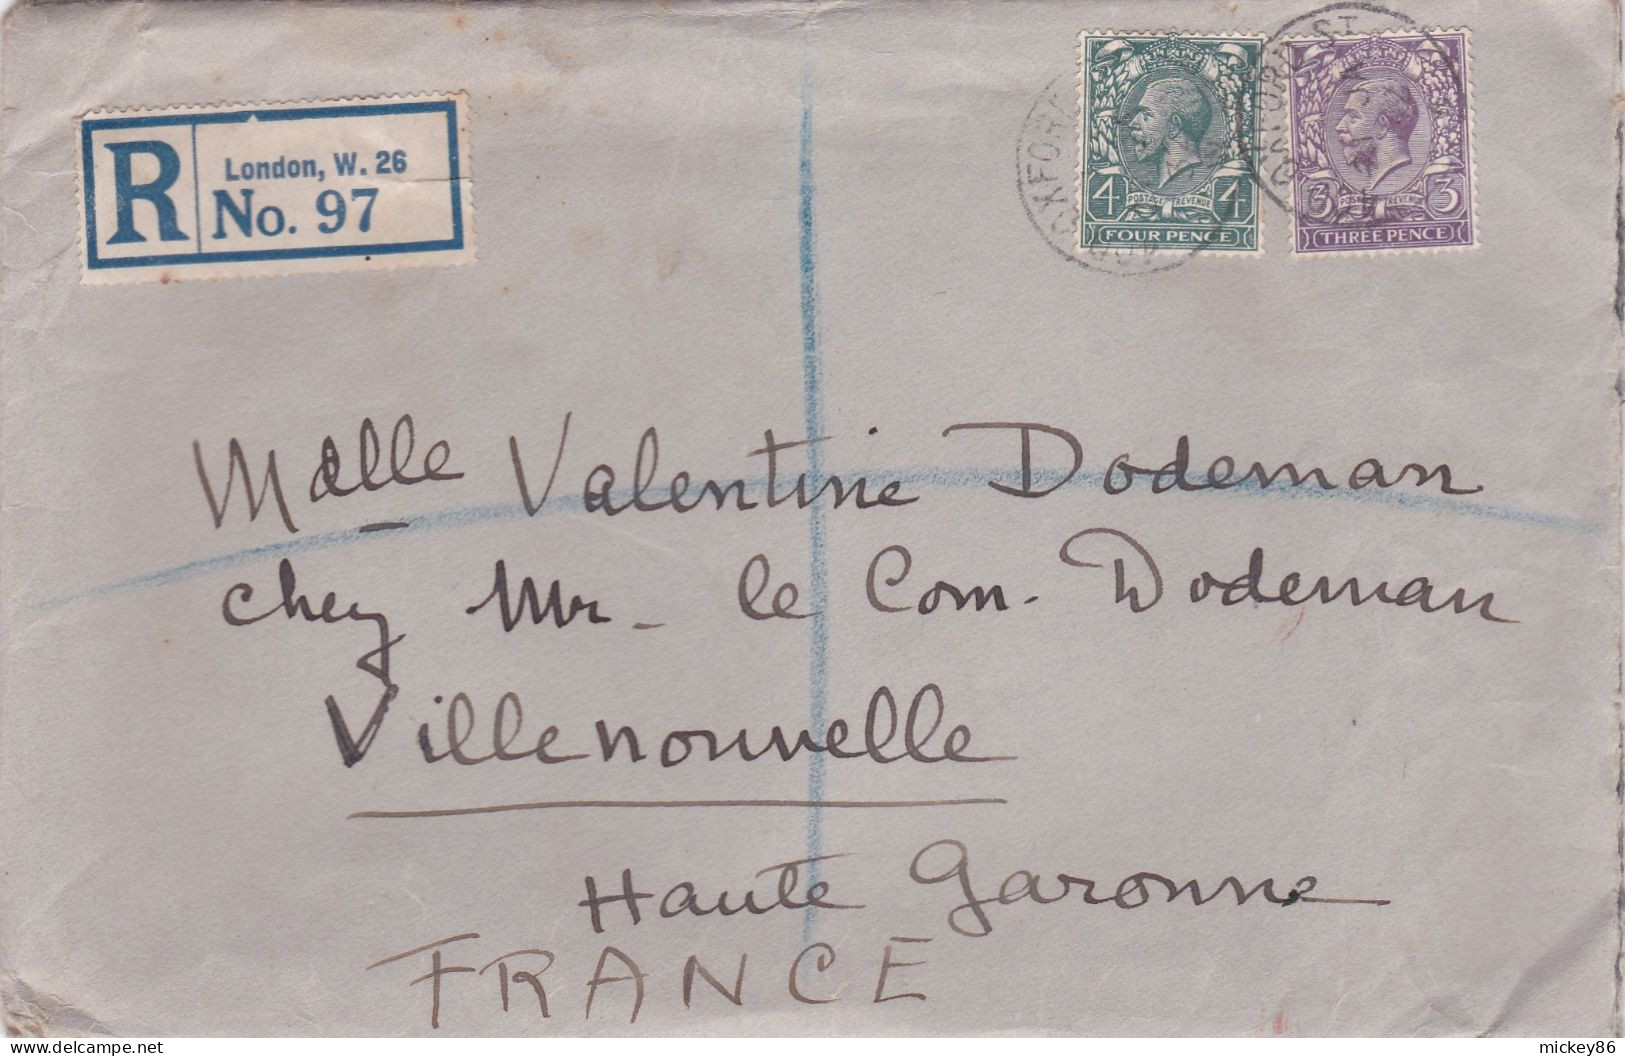 R
London, W. 26
No. 97
OXFORD ST
4 4
POSTAGE REVENUE
FOUR PENCE
3 3
POSTAGE REVENUE
THREE PENCE
Mdelle Valentine Dodeman
chez Mr. le Com. Dodeman
Villenouvelle
Haute Garonne
FRANCE
mickey86